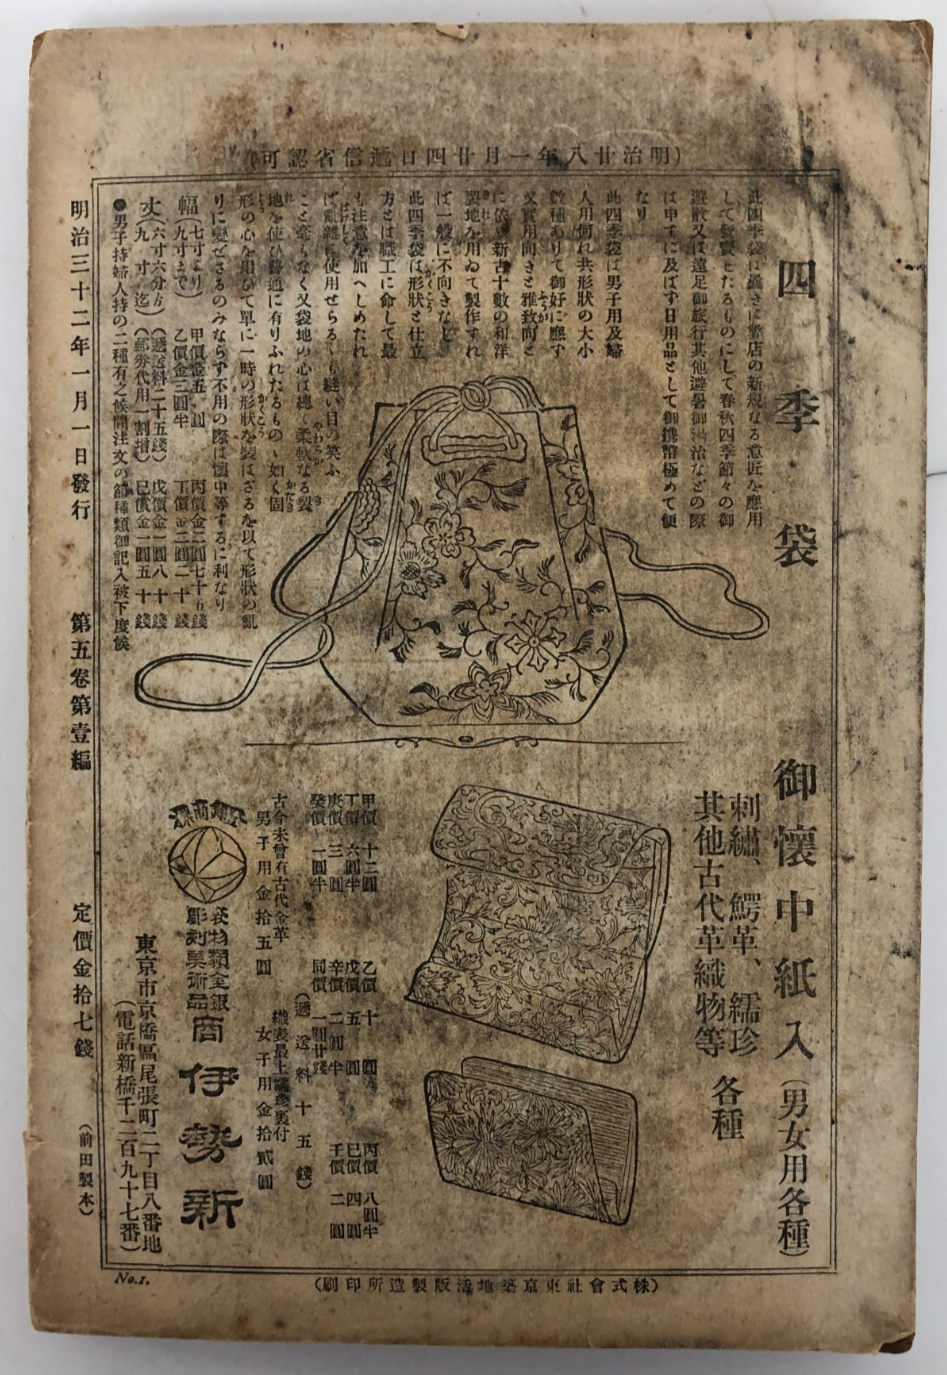 (明治廿八年一月廿四日逓信省認可)
四季袋
此四季袋は
の新規なる意匠を應用
して發賣したるものにして春秋四季節々の御
遊散又は遠足御旅行其他避暑御湯治などの際
は申すに及ばず日用品として御携帶極めて便
なり
此四季袋は男子用及婦
人用何れ共形狀の大小
數種ありて御好に應ず
又實用向きと雅致向と
に依り新古十數の和洋
製地を用ゐて製作すれ
ば一般に不向きなし
此四季袋は形狀と仕立
方とは職工に命して最
も注意を加へしめたれ
ば亂雜に使用せらるゝも縫い目の笑ふ
こと毫もなく又袋地の心は總て柔軟なる裂
地を使ひ普通に有りふれたるものゝ如く固
形の心を用ひて單に一時の形狀を裝はざるを以て形狀の亂
りに變ぜざるのみならず不用の際は懷中等するに利なり
幅(七寸より九寸まで)
甲價金五圓
乙價金三圓半
丙價金二圓七十五錢
丁價金二圓二十錢
丈(六寸六分ゟ九寸迄)
(遞送料二十五錢)
(郵券代用一割增)
戊價金一圓八十錢
己價金一圓五十錢
●男子持婦人持の二種有之候間注文の節種類御記入被下度候
御懷中紙入(男女用各種)
刺繡、鰐革、繻珍
其他古代革織物等
各種
甲價 十二圓
乙價 十圓
丙價 八圓半
丁價 六圓半
戊價 五圓
己價 四圓
庚價 三圓
辛價 二圓半
壬價 二圓
癸價 一圓半
同價 一圓廿錢
(遞送料十五錢)
古今未曾有古代金革
男子用金拾五圓
女子用金拾貳圓
袋物類金銀
彫刻美術品
商
伊勢新
東京市京橋區尾張町二丁目八番地
(電話新橋千二百九十七番)
明治三十二年一月一日發行
第五卷第壹編
定價金拾七錢
(前田製本)
No.1.
(株式會社東京築地活版製造所印刷)